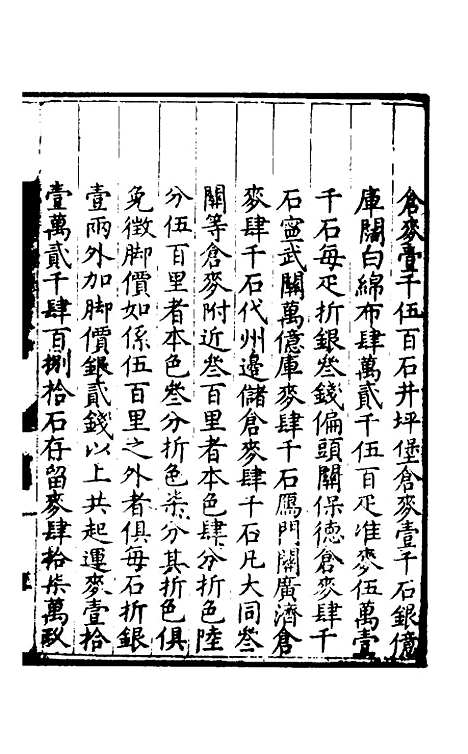 倉麥壹千伍百石井坪堡倉麥壹千石銀億
庫闊白綿布肆萬貳千伍百疋准麥伍萬壹
千石每疋折銀叁錢偏頭關保德倉麥肆千
石寧武關萬億庫麥肆千石鴈門關廣濟倉
麥肆千石代州邊儲倉麥肆千石凡大同叁
關等倉麥附近叁百里者本色肆分折色陸
分伍百里者本色叁分折色柒分其折色俱
免徵脚價如係伍百里之外者俱每石折銀
壹兩外加脚價銀貳錢以上共起運麥壹拾
壹萬貳千肆百捌拾石存留麥肆拾柒萬玖